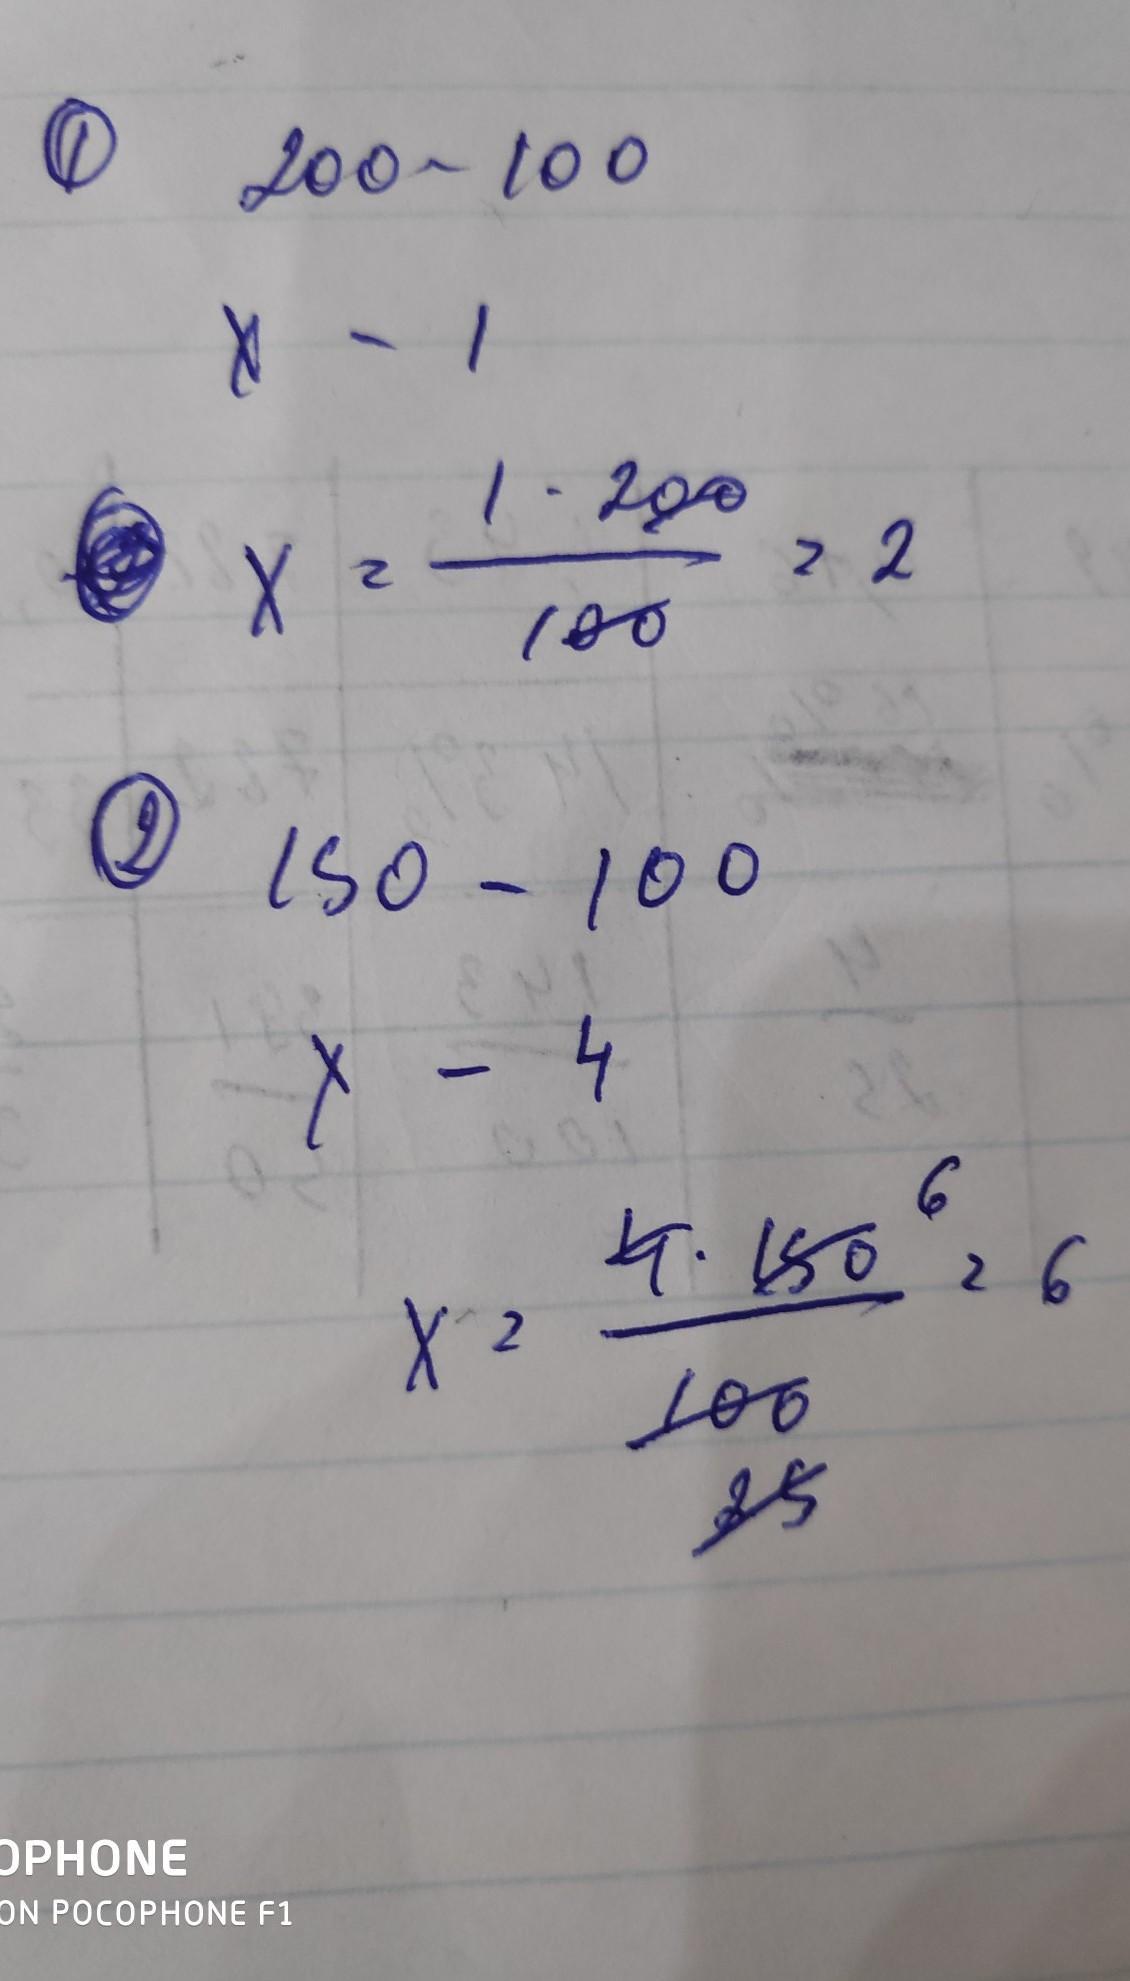 ① 200 - 100
x - 1
x = 1 · 200 / 100 = 2
② 150 - 100
x - 4
x = 4 · 150 6 / 100 25 = 6
OPHONE
ON POCOPHONE F1